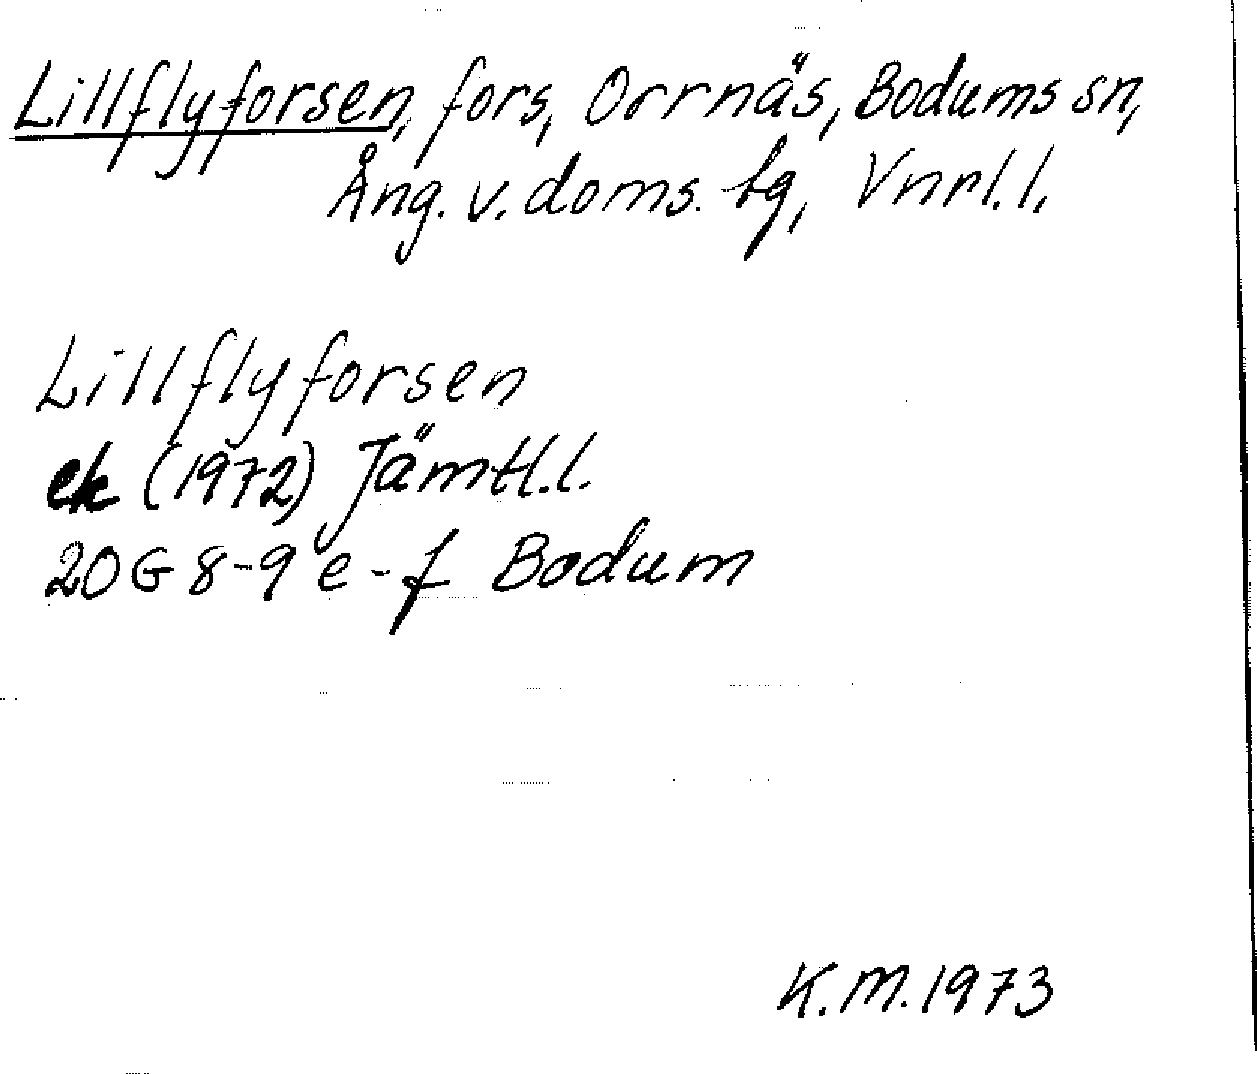 Lillflyforsen, fors, Orrnäs, Bodums sn,
Ång. v. doms. tg, Vnrl. l.
Lillflyforsen
ek (1972) Jämtl. l.
20G 8-9 e-f Bodum
K.M. 1973